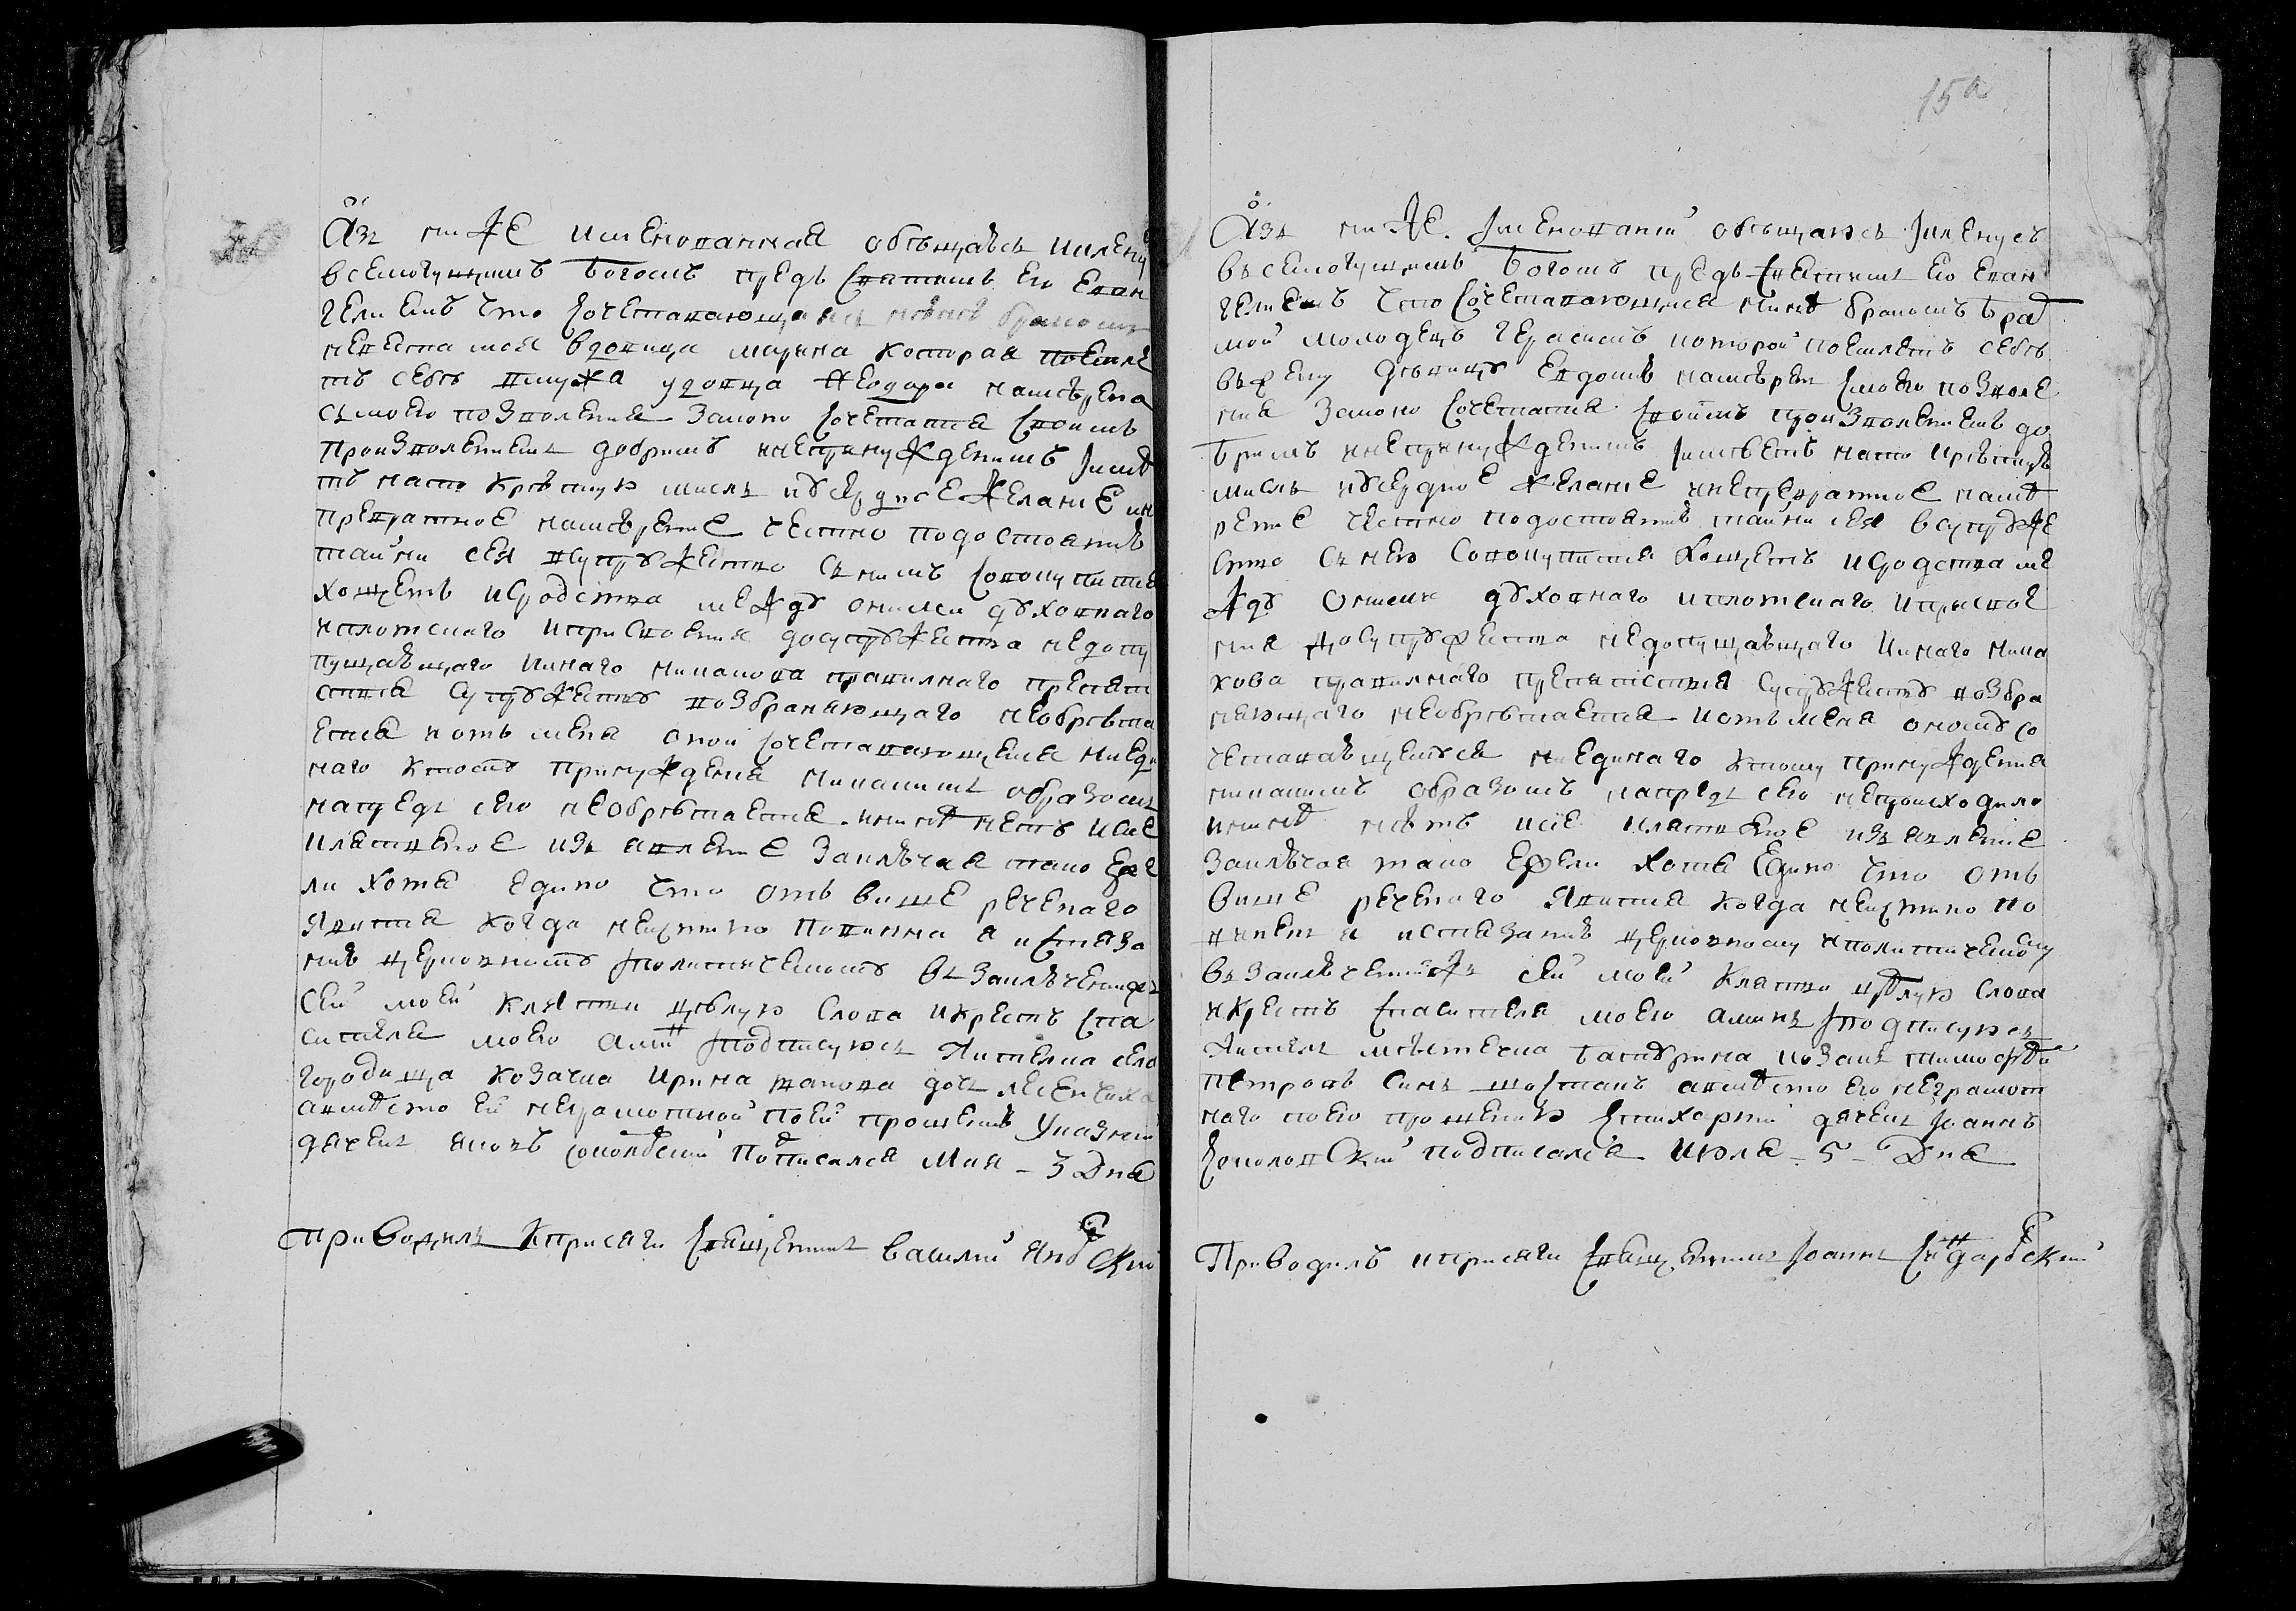 Азъ ниже именованная обѣщаюсь и клену
всемогущимъ Богомъ предъ святымъ его Еван
гелиемъ что сочетавающаяся нынѣ бракомъ
невеста моя вдовица марина которая поемле
тъ себѣ вмужа удовца Феодора намѣрена
съ моего позволения законо сочетатися своимъ
произволениемъ добримъ инепринужденимъ имѣе
тъ на сто крѣпкую мисль и усердное желание и не
превратное намѣрение честно подостоянию
тайни сея всупружество съ нимъ совокупитися
хощетъ и сродства между оними духовнаго
и плотскаго и присвоения до супружества недопу
щающаго и инаго никакова правилнаго препят
ствия супружеству возбраняющаго необрѣта
ется и отъ мена оной сочетавающейся ни еди
наго к тому принуждения никакимъ образомъ
напредъ сего необрѣтается и нинѣ нетъ и сие
клятвеное изъявление заключая тако еже
ли хотя едино что отъ више реченаго
явится когда неистинно повинна я истяза
нию церковному и политическому въ заключениижъ
сей моей клятви цѣлую слова и крестъ спа
сителя моего аминь подписуюсь жителка села
городища козачка ирина
а вмѣсто ей неграмотной по ей прошению указний
дячекъ яковъ соколовский подписался мая - 3 Дня
Приводилъ к присяги священикъ василий яновский
15а
Азъ ниже именований обѣщаюсь и кленусь
въсемогущимъ Богомъ предъ святимъ его еван
гелиемъ что сочетавающийся нинѣ бракомъ брат
мой молодецъ герасимъ которой поемлетъ себѣ
въ жену дѣвицу Евдокию намѣренъ с моего позволе
ния законо сочетатися своимъ произволениемъ до
бримъ и непринужденимъ и имѣетъ на сто крѣпкую
мисль и усердное желание и непревратное намѣ
рение честно подостоянию тайни сея всупруже
ство съ нею совокупитися хощетъ и сродства ме
жду оними духовнаго и плотскаго и присвое
ния до супружества недопущающаго и инаго ника
кова правилнаго препятствия супружеству возбра
няющаго необрѣтается и отъ мена оному со
четавающемуся ни единаго к тому принуждения
никакимъ образомъ напредъ сего непроисходило
и нинѣ нѣтъ и сие клятвеное изъявление
заключая тако ежели хотя едино что отъ
више реченаго явится когда неистинно по
виненъ я истязанию церковному и политическому
въ заключениижъ сей моей клятви цѣлую слова
и крестъ спасителя моего аминь подписуюсь
житель мѣстечка козакъ тимофѣй
петровъ синъ шостакъ а вмѣсто его неграмот
наго по его прошению стихарний дячекъ иоаннъ
соколовский подписался июля - 5 - Дня
Приводилъ к присяги священикъ иоаннъ